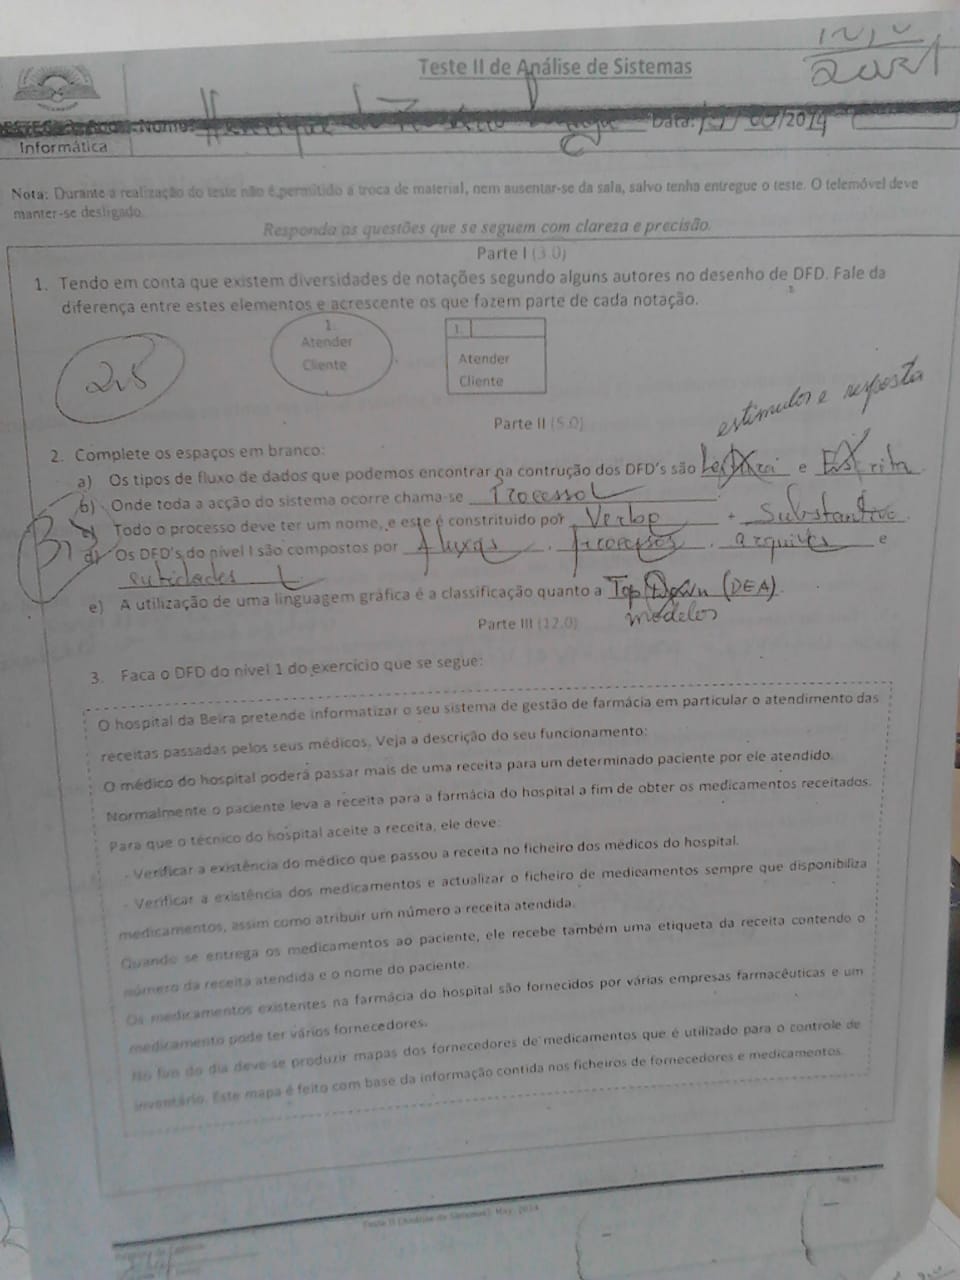 Teste II de Análise de Sistemas
Nome: Data: /2014
Informática
Nota: Durante a realização do teste não é permitido a troca de material, nem ausentar-se da sala, salvo tenha entregue o teste. O telemóvel deve
manter-se desligado.
Responda as questões que se seguem com clareza e precisão.
Parte I (3.0)
1. Tendo em conta que existem diversidades de notações segundo alguns autores no desenho de DFD. Fale da
diferença entre estes elementos e acrescente os que fazem parte de cada notação.
1.
Atender
Cliente
1.
Atender
Cliente
2,5
estimulos e resposta
Parte II (5.0)
2. Complete os espaços em branco:
a) Os tipos de fluxo de dados que podemos encontrar na contrução dos DFD's são e Escrita
b) Onde toda a acção do sistema ocorre chama-se Processo
c) Todo o processo deve ter um nome, e este é constrituido por Verbo + Substantivo
d) Os DFD's do nivel I são compostos por fluxos, processos, arquivos e
entidades
e) A utilização de uma linguagem gráfica é a classificação quanto a Top Down (DEA)
modelos
Parte III (12.0)
3. Faca o DFD do nivel 1 do exercício que se segue:
O hospital da Beira pretende informatizar o seu sistema de gestão de farmácia em particular o atendimento das
receitas passadas pelos seus médicos. Veja a descrição do seu funcionamento:
O médico do hospital poderá passar mais de uma receita para um determinado paciente por ele atendido.
Normalmente o paciente leva a receita para a farmácia do hospital a fim de obter os medicamentos receitados.
Para que o técnico do hospital aceite a receita, ele deve:
- Verificar a existência do médico que passou a receita no ficheiro dos médicos do hospital.
- Verificar a existência dos medicamentos e actualizar o ficheiro de medicamentos sempre que disponibiliza
medicamentos, assim como atribuir um número a receita atendida.
Quando se entrega os medicamentos ao paciente, ele recebe também uma etiqueta da receita contendo o
número da receita atendida e o nome do paciente.
Os medicamentos existentes na farmácia do hospital são fornecidos por várias empresas farmacêuticas e um
medicamento pode ter vários fornecedores.
No fim do dia deve-se produzir mapas dos fornecedores de medicamentos que é utilizado para o controle de
inventário. Este mapa é feito com base da informação contida nos ficheiros de fornecedores e medicamentos.
Teste II (Análise de Sistemas), May, 2014